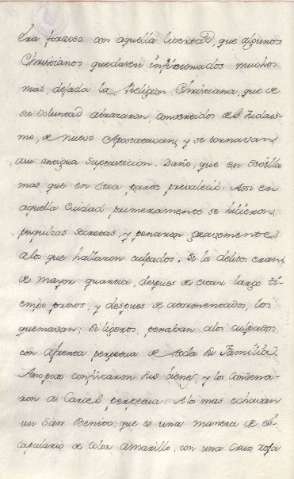 Era forzoso con aquella libertad, que algunos
Christianos quedasen inficionados muchos
mas dejada la Religion Christiana, que de
su voluntad abrazaron, convertidos de el Judais-
mo, de nuevo Apostataron, y se tornavan
a su antigua Supersticion. Daño, que en Sevilla
mas que en otra parte prevalecio. Asi en
aquella Ciudad, primeramente se hicieron
pesquisas secretas, y penaron gravemente
a los que hallaron culpados. Si los delitos eran
de mayor quantia, despues de estar largo ti-
empo presos, y despues de atormentados, los
quemavan: Si ligeros, penavan a los culpados
con afrenta perpetua de toda su Familia.
A no pocos confiscaron sus bienes, y los condena-
ron a Carcel perpetua. A los mas echavan
un San Benito, que es una manera de es-
capulario de color amarillo, con una Cruz roja